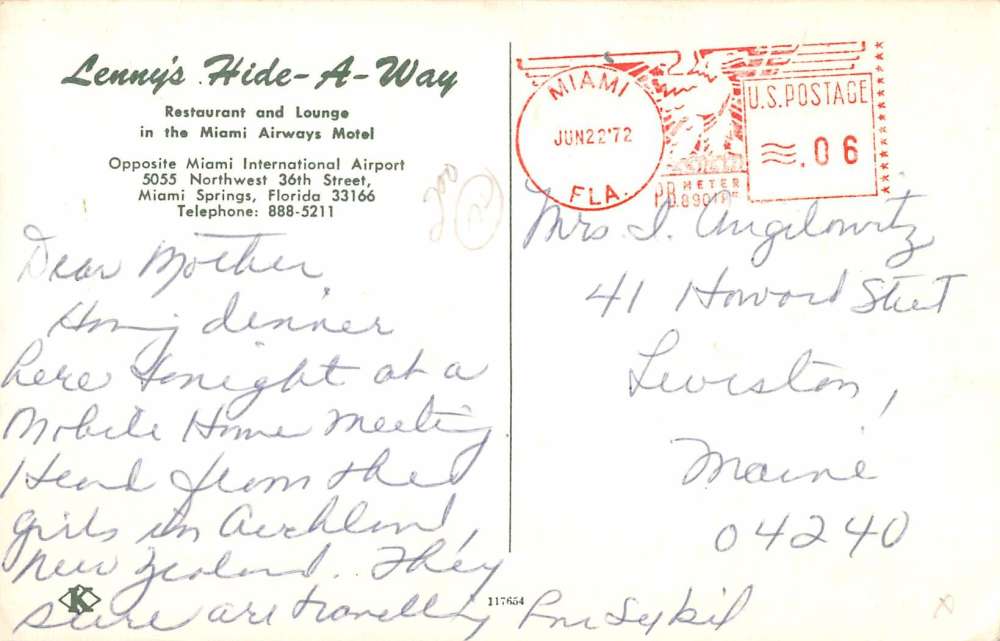 Lenny's Hide-A-Way
Restaurant and Lounge
in the Miami Airways Motel
Opposite Miami International Airport
5055 Northwest 36th Street,
Miami Springs, Florida 33166
Telephone: 888-5211
200
Dear Mother,
Having dinner
here tonight at a
Mobile Home Meeting
Heard from the
girls in Auckland,
New Zealand. They
sure are travelling
K
117654
MIAMI
JUN22'72
FLA.
U.S.POSTAGE
.06
P.B. METER
Mrs. I. Angilowitz
41 Howard Street
Lewiston,
Maine
04240